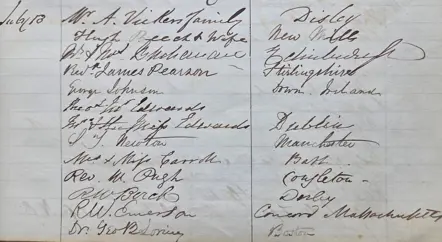 July 13 Mr. A. Vickers family Disley
Hugh Beech & Wife New Mills
Mr. & Mrs. Edinburgh
Revd. James Pearson Stirlingshire
George Johnson Down. Ireland
Edwards
Miss Edwards Dublin
Newton Manchester
Mrs & Miss Carroll Bath
Rev. W. Pugh Congleton
R W Birch Derby
R. W. Emerson Concord Massachusetts
Dr. Geo B Loring Boston